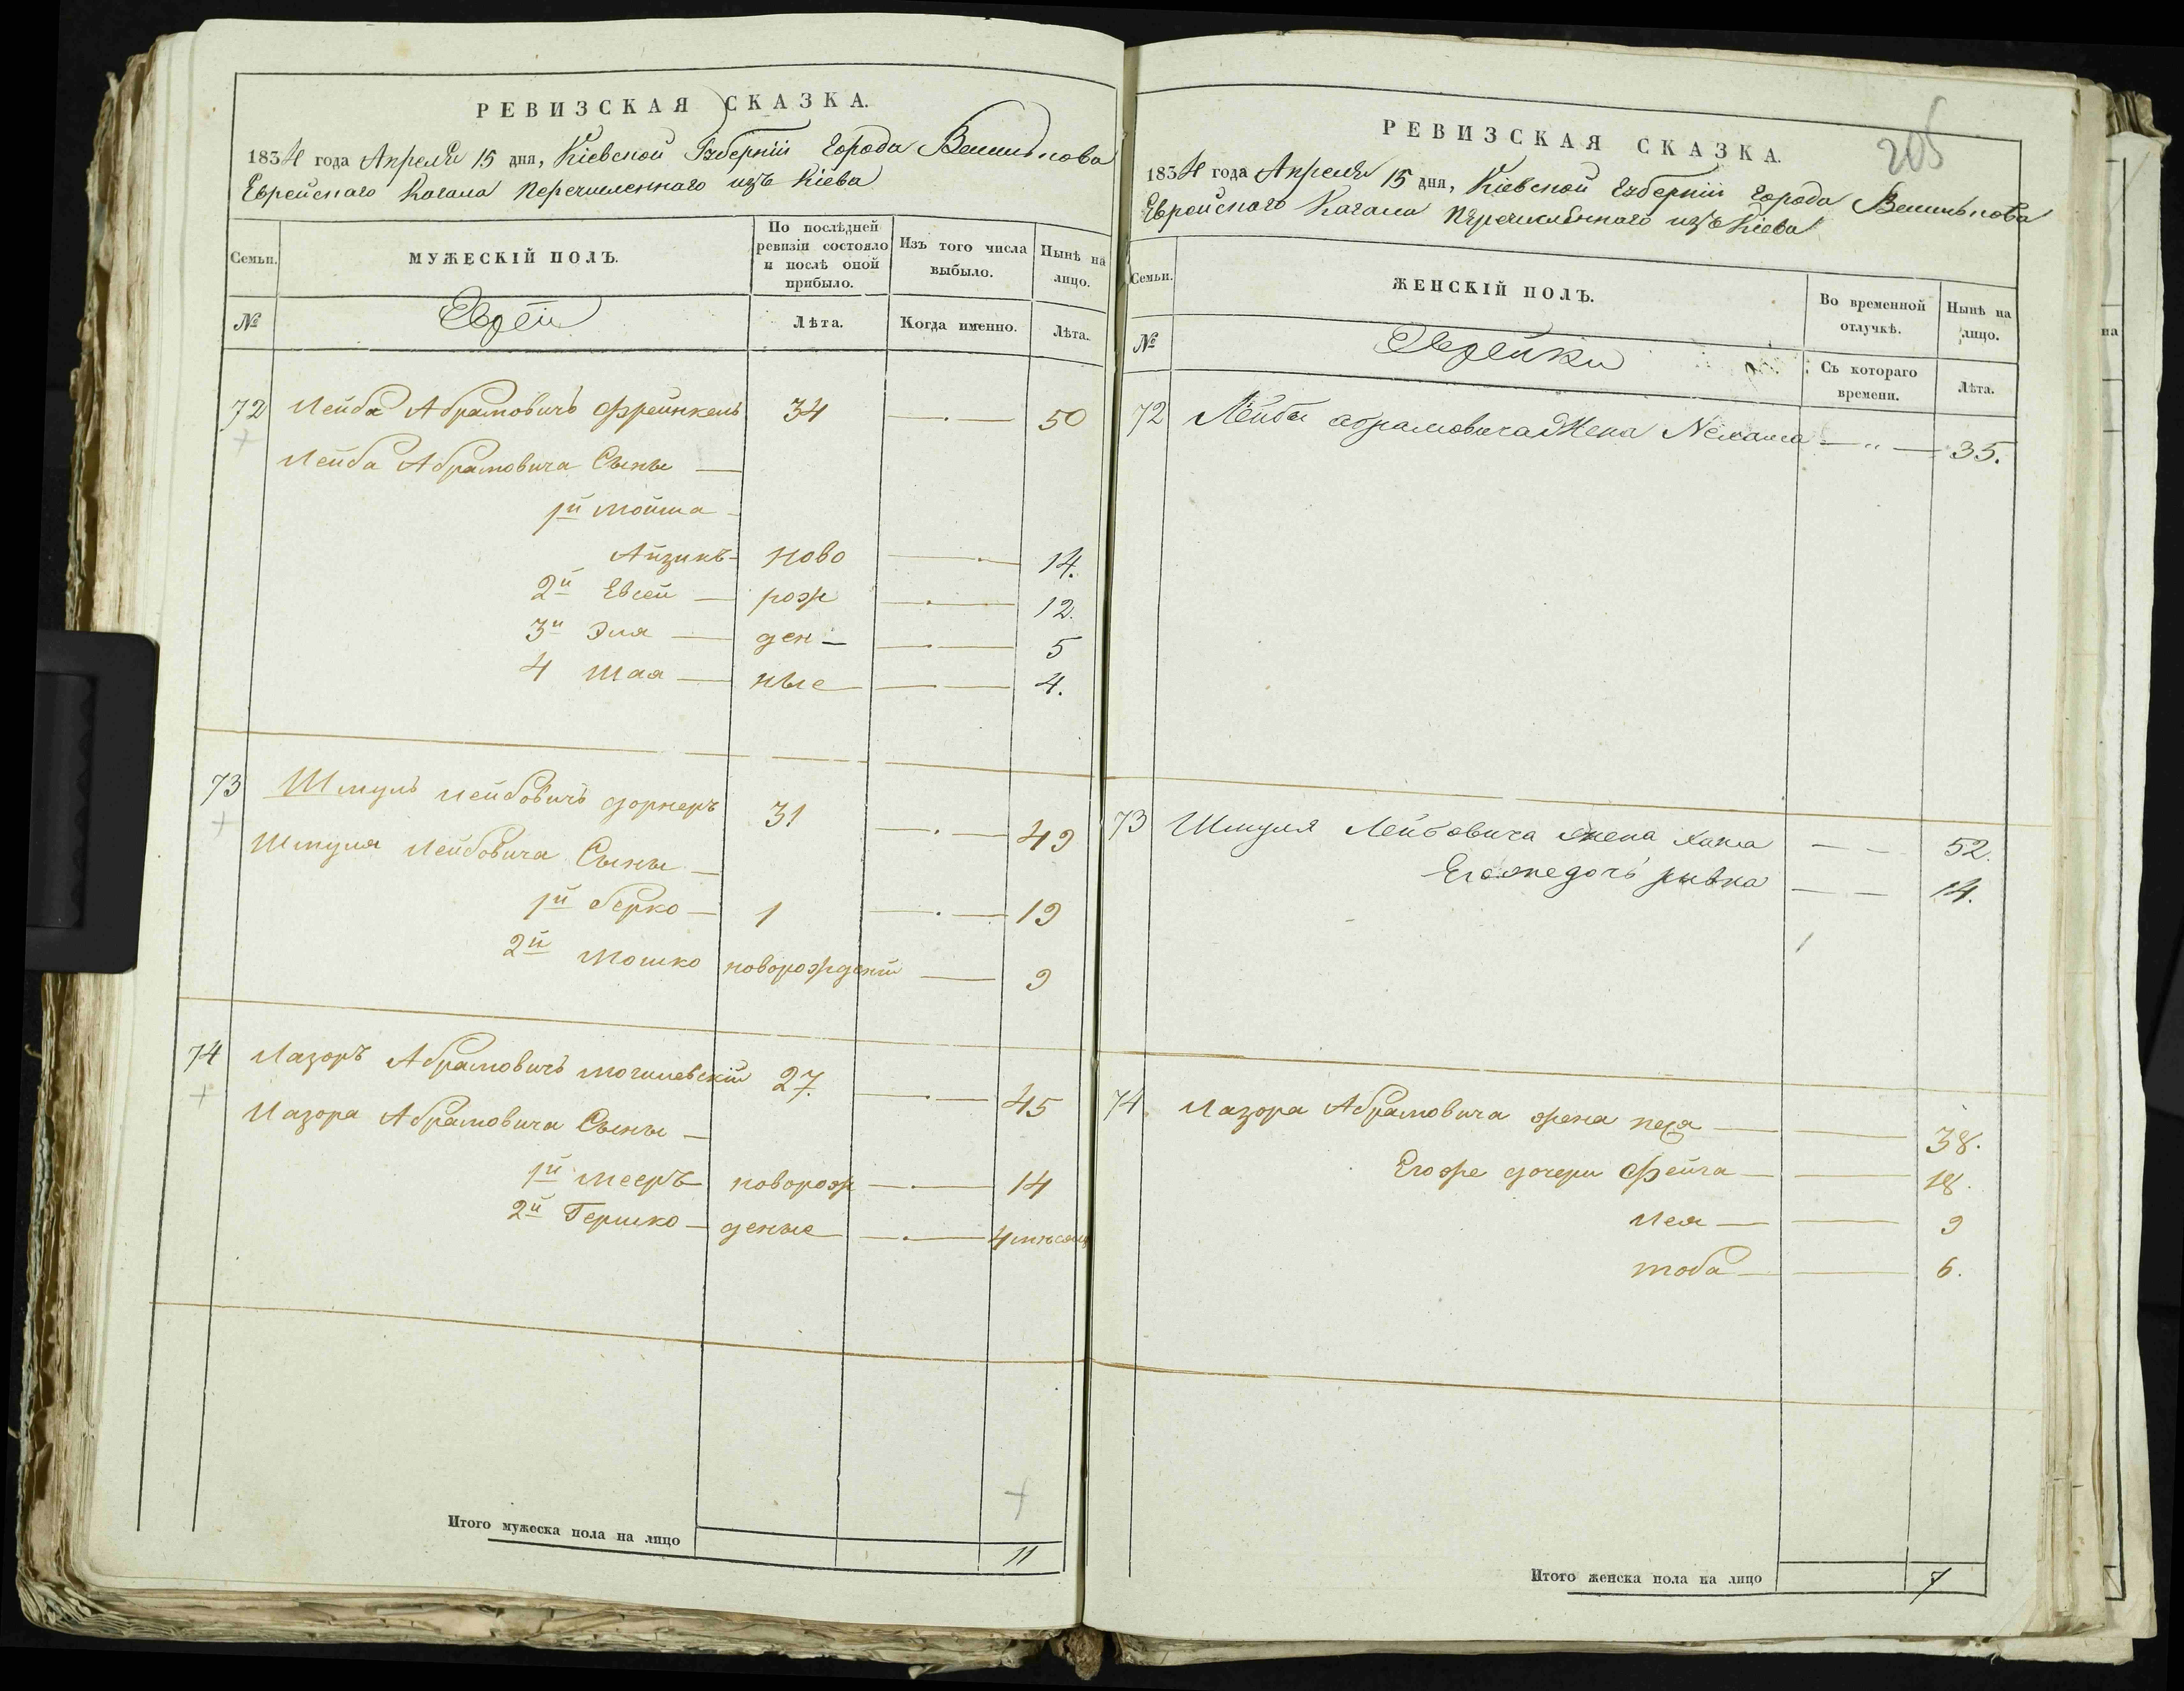 РЕВИЗСКАЯ СКАЗКА.
1834 года Апреля 15 дня, Кіевской Губерніи Города Василькова
Еврейскаго Кагала перечисленнаго изъ Кіева
Семьи.
МУЖЕСКІЙ ПОЛЪ.
По послѣдней ревизіи состояло и послѣ оной прибыло.
Изъ того числа выбыло.
Нынѣ на лицо.
№
Евреи
Лѣта.
Когда именно.
Лѣта.
72 Лейба Абрамовичъ Френкель 34 50
Лейба Абрамовича Сыны
1й Мойша
Айзикъ ново 14.
2й Евсей рож 12.
3й Эля ден 5
4 Шая ные 4.
73 Шмуль Лейбовичъ Дорнеръ 31 49
Шмуля Лейбовича Сыны
1й Берко 1 19
2й Мошко новорожденій 9
74 Лазоръ Абрамовичъ Могилевскій 27. 45
Лазора Абрамовича Сыны
1й Мееръ новорож 14
2й Гершко деные 4 мѣсяц
Итого мужеска пола на лицо 11
205
РЕВИЗСКАЯ СКАЗКА.
1834 года Апреля 15 дня, Кіевской Губерніи Города Василькова
Еврейскаго Кагала перечисленнаго изъ Кіева
Семьи.
ЖЕНСКІЙ ПОЛЪ.
Во временной отлучкѣ.
Нынѣ на лицо.
№
Еврейки
Съ котораго времени.
Лѣта.
72 Лейбы Абрамовича Жена Нехама 35.
73 Шмуля Лейбовича жена Хана 52.
Егоже дочь Ривка 14.
74 Лазора Абрамовича жена Песя 38.
Егоже дочери Фейга 18.
Лея 9
Тоба 6.
Итого женска пола на лицо 7
на